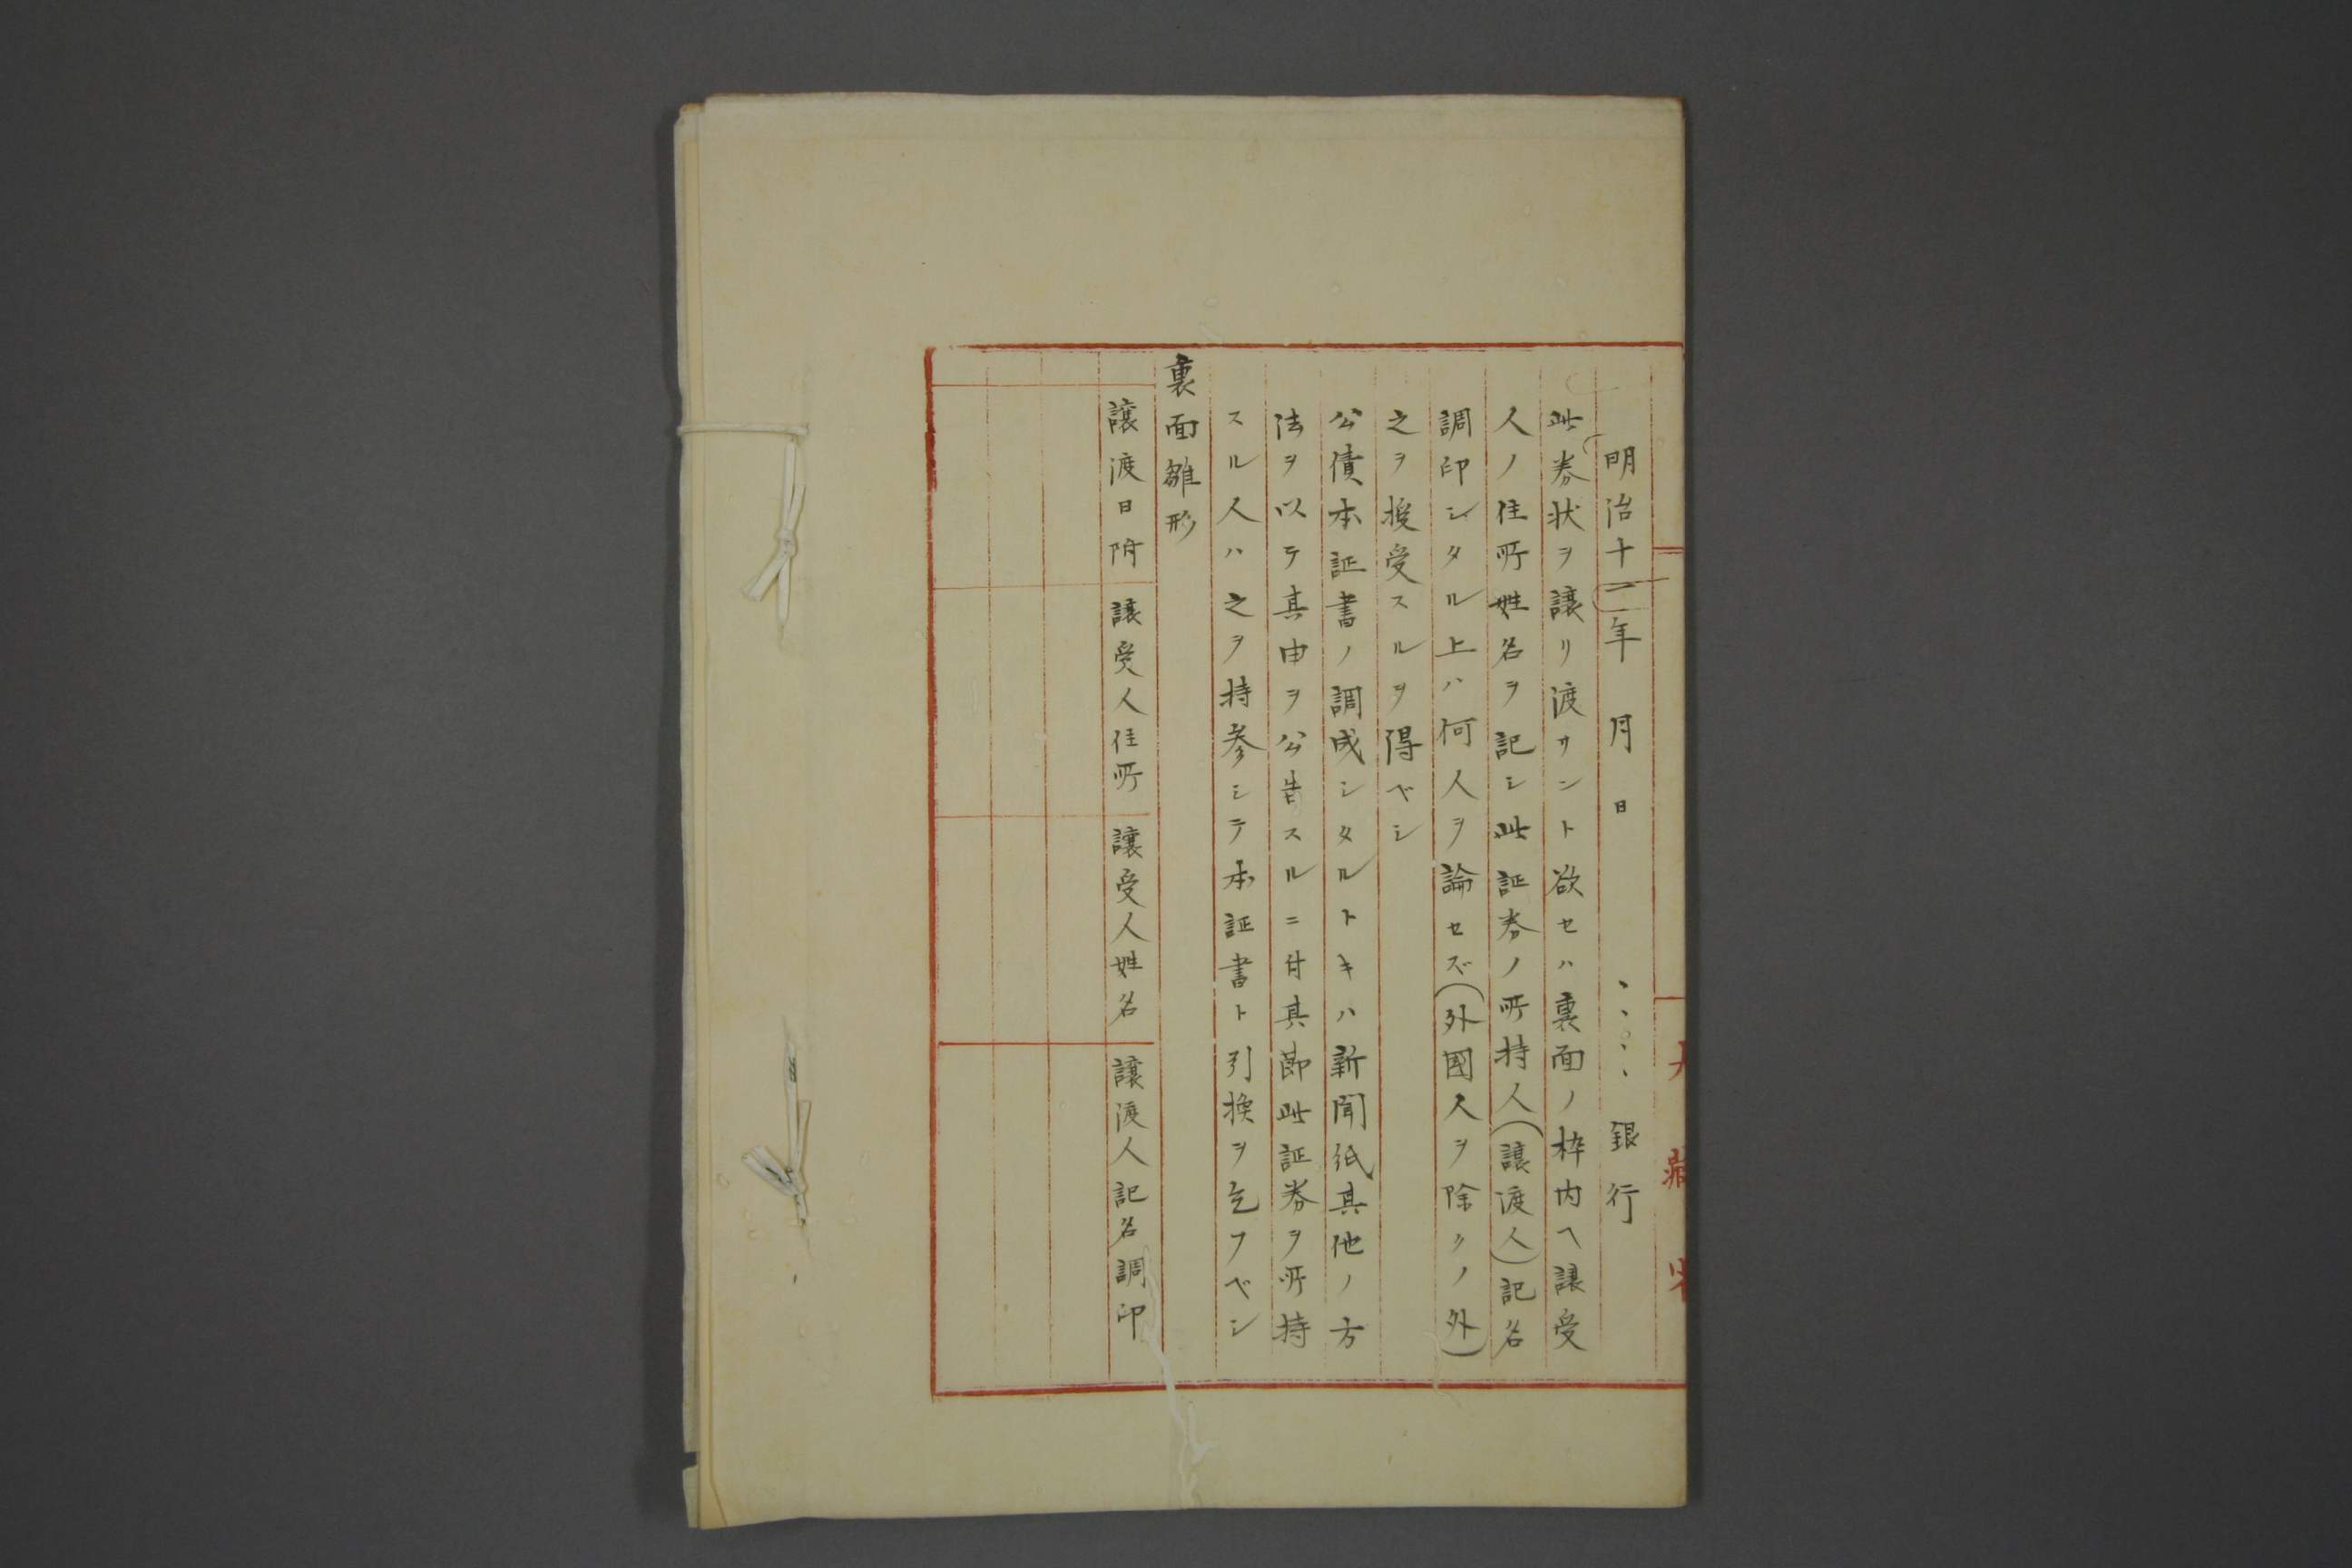 明治十一年　月　日　　　、、、、銀行
此券状ヲ譲リ渡サント欲セハ裏面ノ枠内ヘ譲受
人ノ住所姓名ヲ記シ此証券ノ所持人(譲渡人)記名
調印シタル上ハ何人ヲ論セズ(外國人ヲ除クノ外)
之ヲ授受スルヲ得ベシ
公債本証書ノ調成シタルトキハ新聞紙其他ノ方
法ヲ以テ其由ヲ公告スルニ付其節此証券ヲ所持
スル人ハ之ヲ持参シテ本証書ト引換ヲ乞フベシ
裏面雛形
譲渡日附　譲受人住所　譲受人姓名　譲渡人記名調印